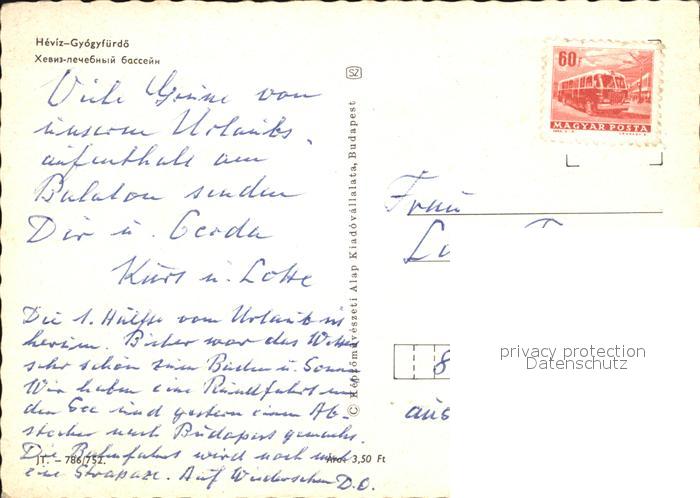 Hévíz–Gyógyfürdő
Хевиз-лечебный бассейн
Viele Grüsse von
unserem Urlaubs
aufenthalt am
Balaton senden
Dir u. Gerda
Kurt u. Lotte
Die 1. Hälfte vom Urlaub ist
herum. Bisher war das Wetter
sehr schön zum Baden u. Sonne
Wir haben eine Rundfahrt um
den See und gestern einen Ab-
stecher nach Budapest gemacht.
Die Bahnfahrt wird noch mal
eine Strapaze. Auf Wiedersehen D.O.
JT. – 786/752.
Ára: 3,50 Ft
SZ
© Képzőművészeti Alap Kiadóvállalata, Budapest
60f
MAGYAR POSTA
Frau
8
aus
privacy protection
Datenschutz